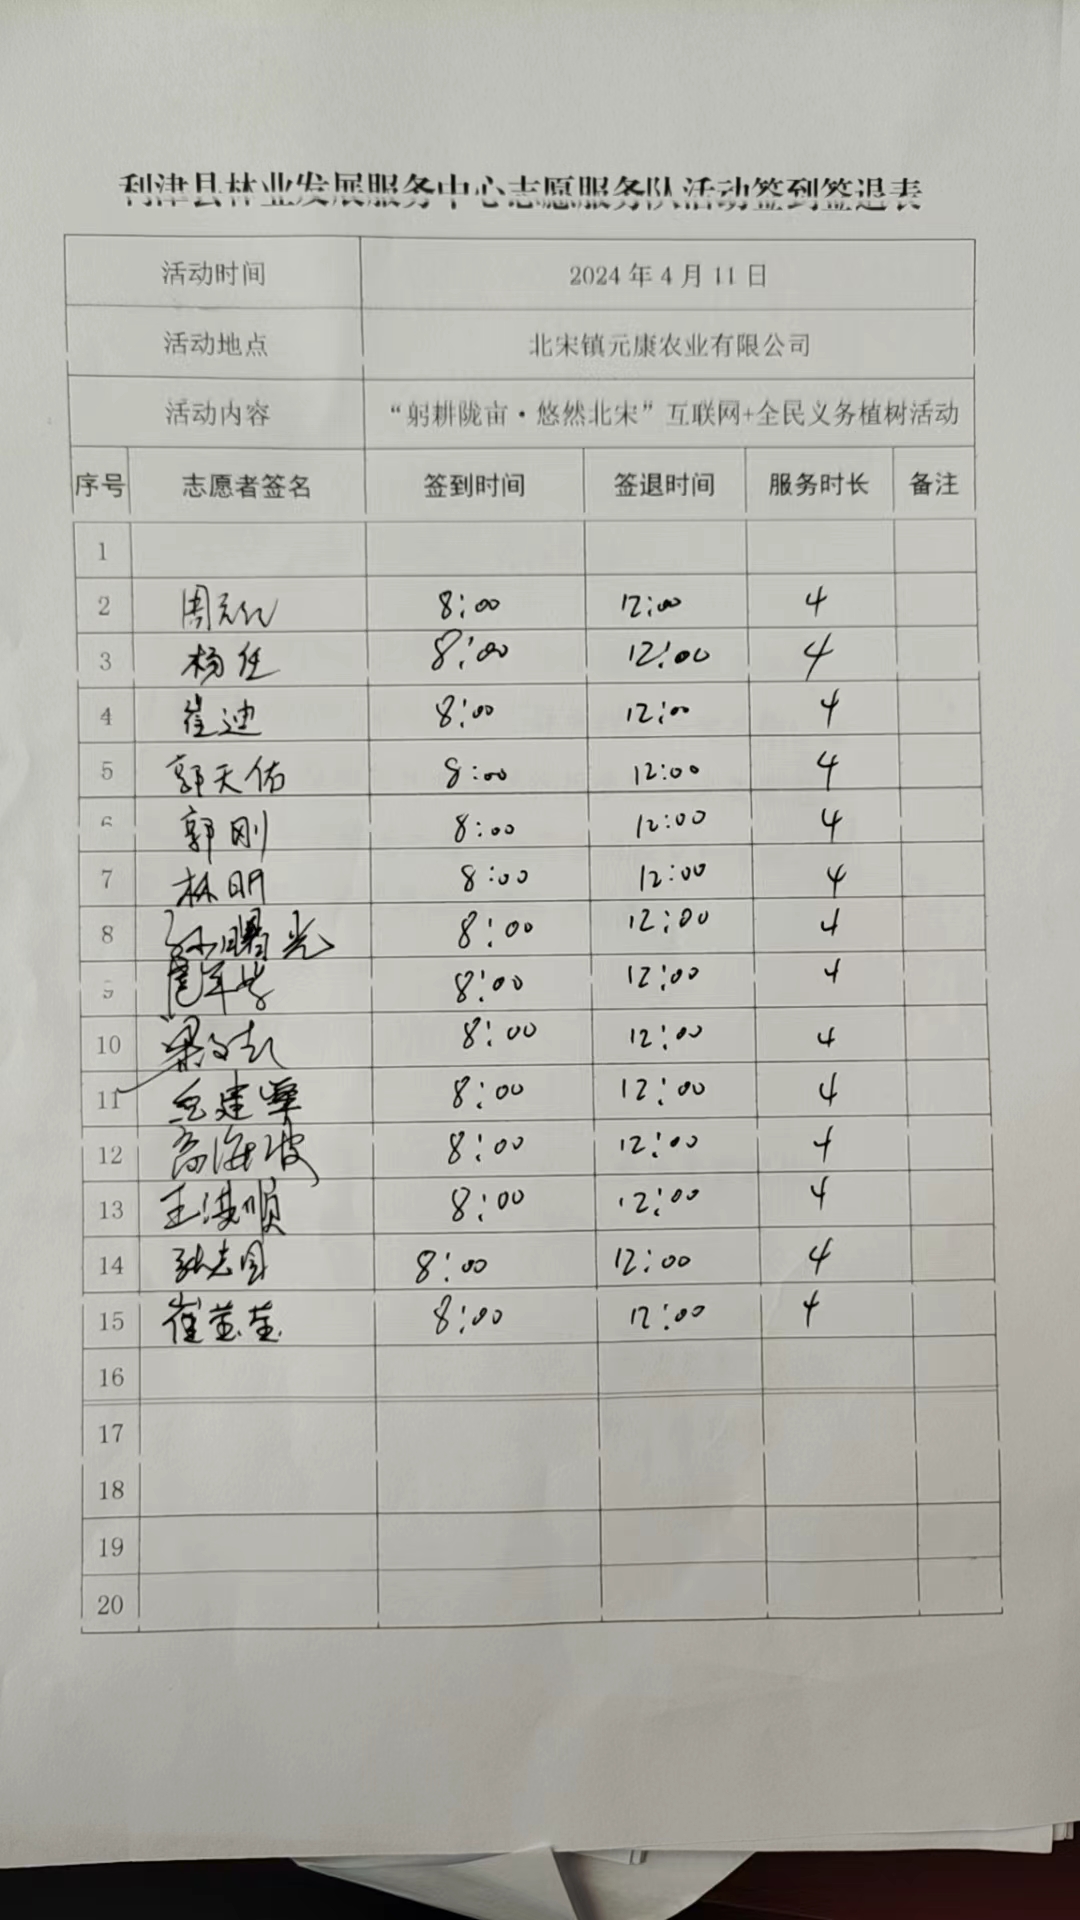 利津县林业发展服务中心志愿服务队活动签到签退表
活动时间 2024年4月11日
活动地点 北宋镇元康农业有限公司
活动内容 “躬耕陇亩·悠然北宋”互联网+全民义务植树活动
序号 志愿者签名 签到时间 签退时间 服务时长 备注
1
2 8:00 12:00 4
3 杨任 8:00 12:00 4
4 崔迪 8:00 12:00 4
5 郭天佑 8:00 12:00 4
6 郭刚 8:00 12:00 4
7 林明 8:00 12:00 4
8 孙曙光 8:00 12:00 4
9 8:00 12:00 4
10 8:00 12:00 4
11 8:00 12:00 4
12 高海波 8:00 12:00 4
13 8:00 12:00 4
14 8:00 12:00 4
15 崔莹莹 8:00 12:00 4
16
17
18
19
20